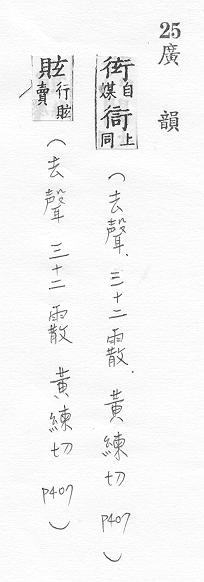 25 廣韻
衒 自媒 䘕 上同 (去聲 三十二霰. 黃練切 P407)
䝮 行䝮賣 (去聲 三十二霰 黃練切 P407)